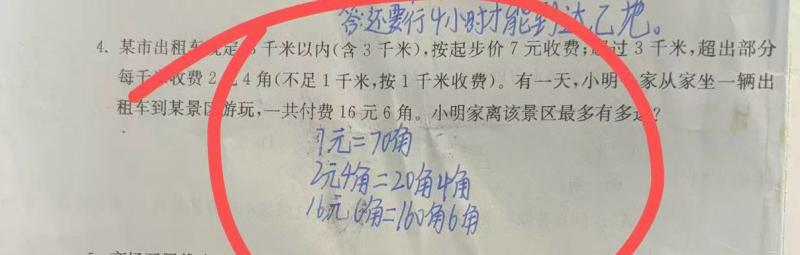 答还要行4小时才能到达乙地。
4. 某市出租车规定3千米以内(含3千米),按起步价7元收费;超过3千米,超出部分
每千米收费2元4角(不足1千米,按1千米收费)。有一天,小明一家从家坐一辆出
租车到某景区游玩,一共付费16元6角。小明家离该景区最多有多远?
7元=70角
2元4角=20角4角
16元6角=160角6角